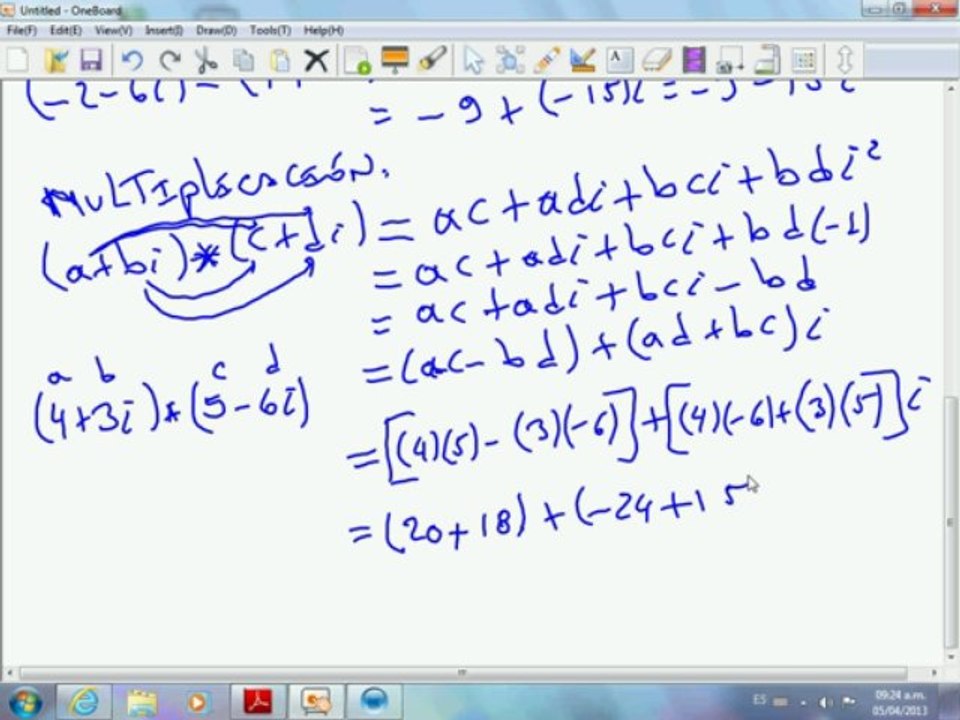 Untitled - OneBoard
File(F) Edit(E) View(V) Insert(I) Draw(D) Tools(T) Help(H)
= -9 + (-15)i = -9 - 15i
MULTIplicación.
(a+bi)*(c+di) = ac+adi+bci+bdi²
= ac+adi+bci+bd(-1)
= ac+adi+bci-bd
= (ac-bd)+(ad+bc)i
a b c d
(4+3i)*(5-6i)
= [(4)(5)-(3)(-6)]+[(4)(-6)+(3)(5)]i
= (20+18)+(-24+15
ES
09:24 a.m.
05/04/2013